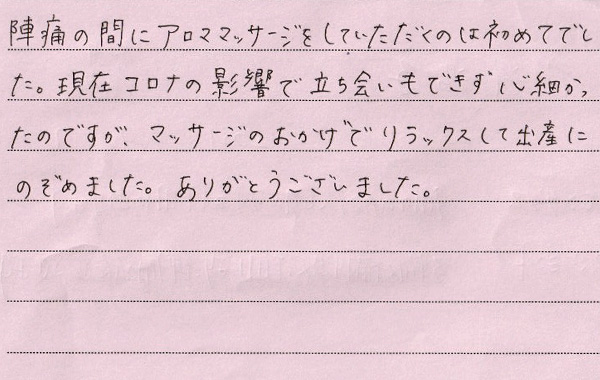 陣痛の間にアロママッサージをしていただくのは初めてでし
た。現在コロナの影響で立ち会いもできず心細かっ
たのですが、マッサージのおかげでリラックスして出産に
のぞめました。ありがとうございました。